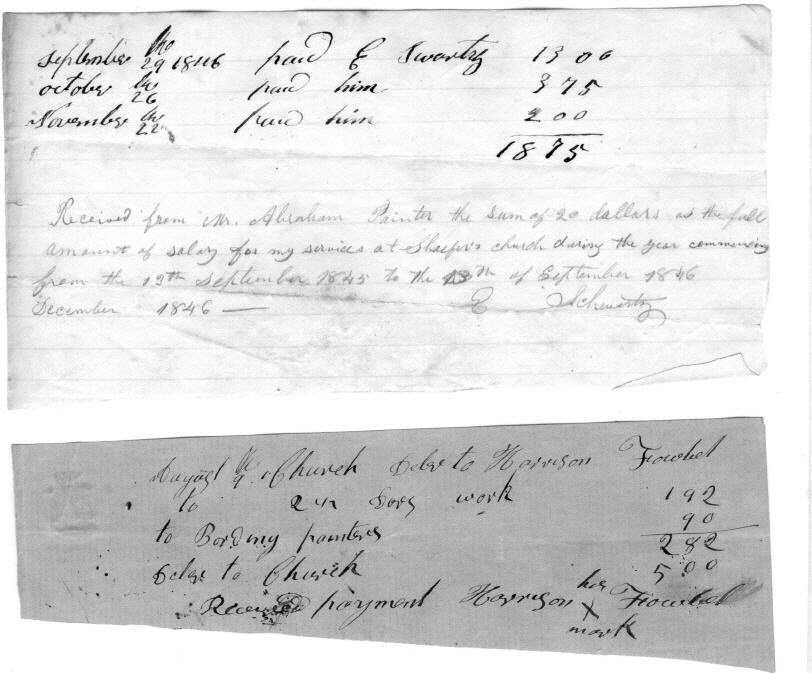 September the 29 1846 paid E Swartz 13 00
october the 26 paid him 3 75
November the 22 paid him 2 00
18 75
Received from Mr. Abraham Painter the sum of 20 dollars as the full
amount of salary for my services at Shaefer's church during the year commencing
from the 13th September 1845 to the 13th of September 1846
December 1846 — E Schwartz
August the 9 Church Deler to Harrison Fowbel
to 2 Days work 1 92
to Bording painters 90
2 82
Deler to Church 5 00
Received payment Harrison his X mark Fowbel